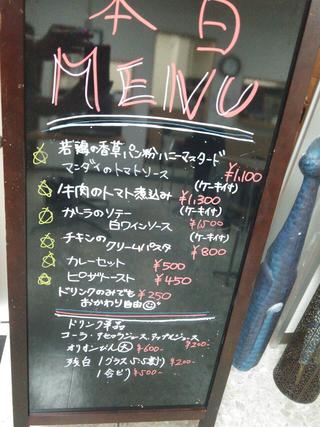 本日
MENU
若鶏の香草パン粉ハニーマスタード
マンダイのトマトソース ¥1,100
(ケーキ付)
牛肉のトマト煮込み ¥1,300
(ケーキ付)
カレラのソテー
白ワインソース ¥1,500
(ケーキ付)
チキンの
クリームパスタ ¥800
カレーセット ¥500
ピザトースト ¥450
ドリンクのみでも ¥250
おかわり自由
ドリンク単品
コーラ・アセロラジュース、アップルジュース
¥200-
オリオンびん 大 ¥600-
残白 1グラス ¥200-
1合ビン ¥500-